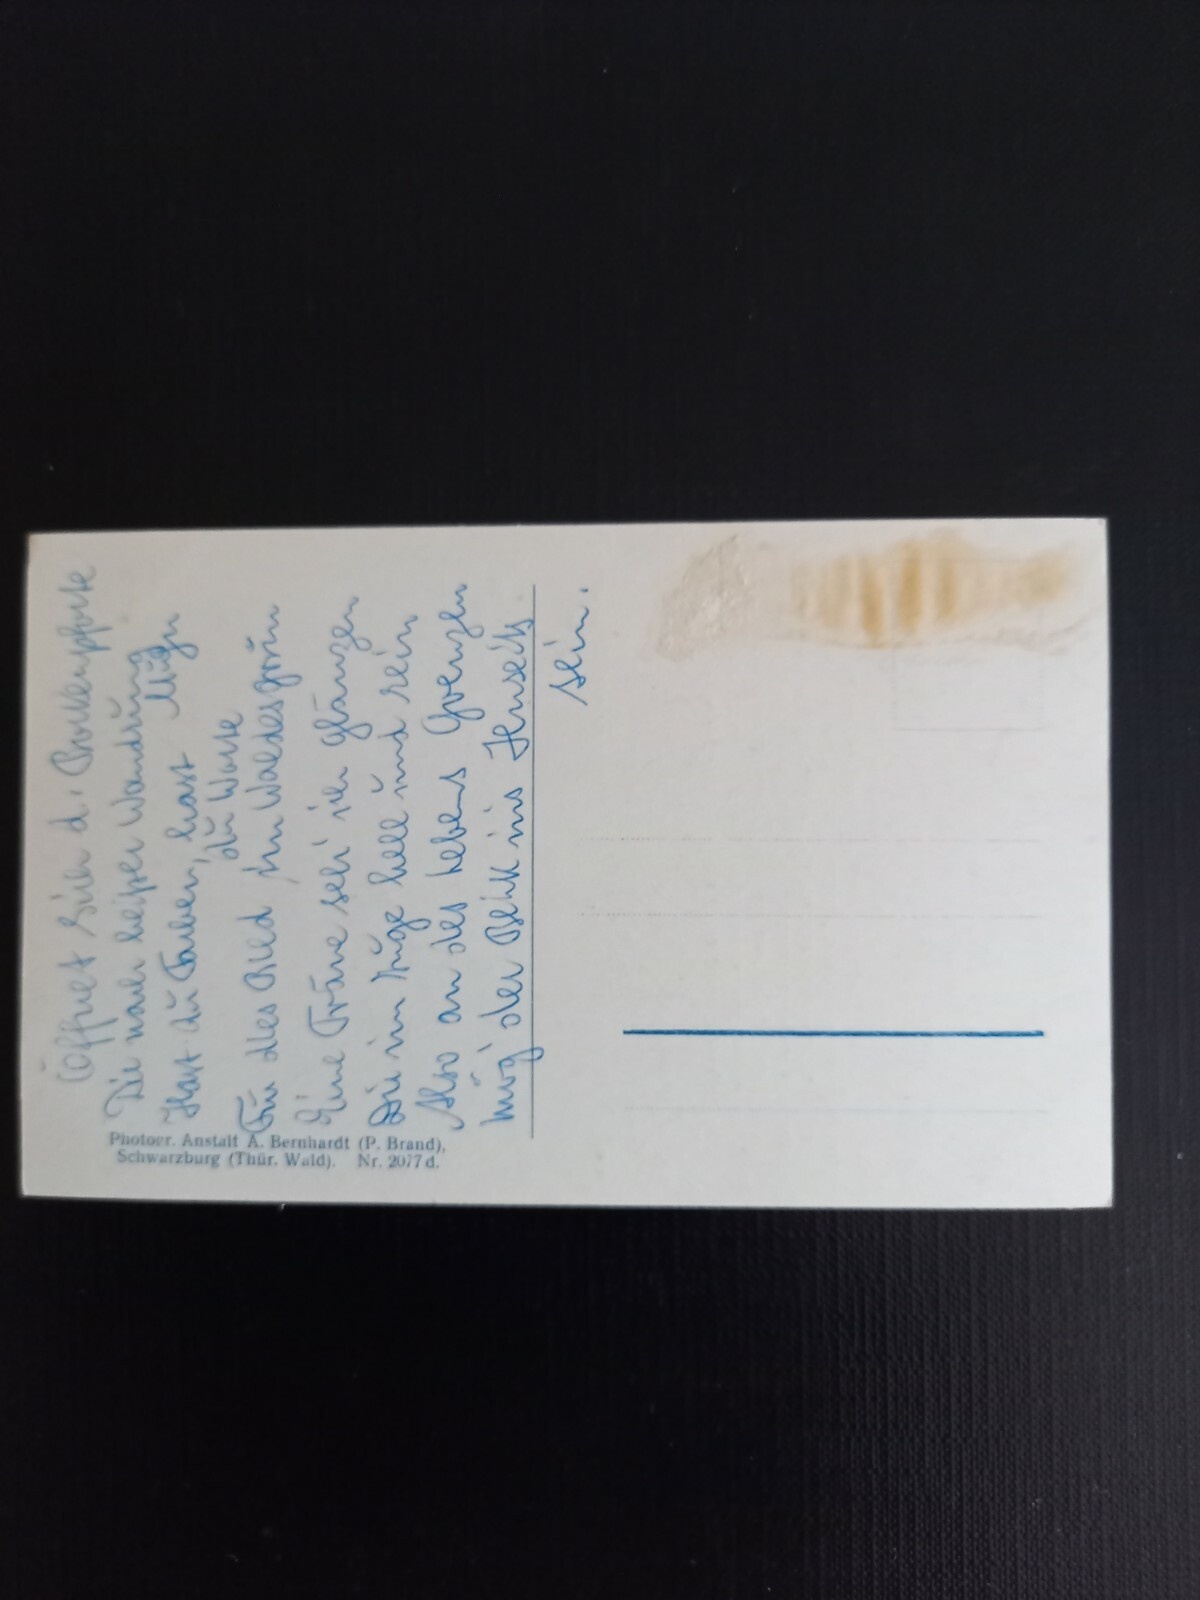 Öffnet sich d. Birkenpforte
Die nach heißer Wandrung
Hast du Farben, hast
du Worte
Für dies Bild im Waldesgrün
Eine Träne seh' ich glänzen
Die im Auge hell und rein
Also an des Lebens Grenzen
mög' der Blick ins Jenseits
sein.
Photogr. Anstalt A. Bernhardt (P. Brand),
Schwarzburg (Thür. Wald). Nr. 2077d.